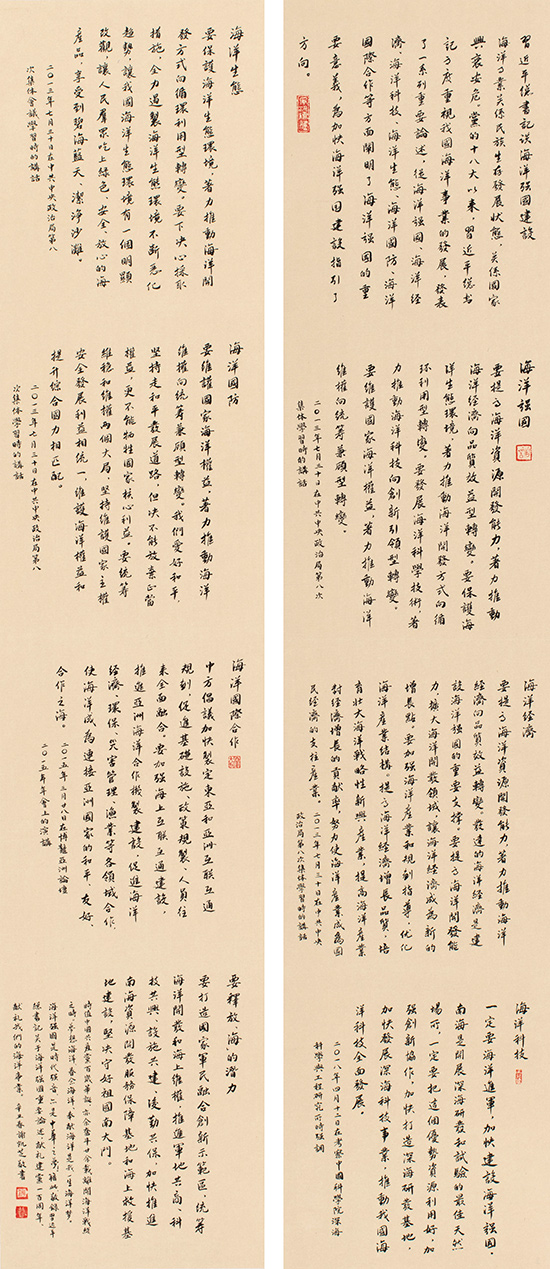 習近平總書記談海洋強國建設
海洋事業關係民族生存發展狀態，關係國家
興衰安危。黨的十八大以來，習近平總書
記高度重視我國海洋事業的發展，發表
了一系列重要論述，從海洋強國、海洋經
濟、海洋科技、海洋生態、海洋國防、海洋
國際合作等方面闡明了海洋強國的重
要意義，為加快海洋强國建設指引了
方向。
海洋強國
要提高海洋資源開發能力，著力推動
海洋經濟向品質效益型轉變。要保護海
洋生態環境，著力推動海洋開發方式向循
環利用型轉變。要發展海洋科學技術，著
力推動海洋科技向創新引領型轉變。
要維護國家海洋權益，著力推動海洋
維權向統籌兼顧型轉變。
二〇一三年七月三十日在中共中央政治局第八次
集體學習時的講話
海洋經濟
要提高海洋資源開發能力，著力推動海洋
經濟向品質效益轉變。發達的海洋經濟是建
設海洋强國的重要支撐。要提高海洋開發能
力，擴大海洋開發領域，讓海洋經濟成為新的
增長點。要加強海洋產業和規劃指導，優化
海洋產業結構。提高海洋經濟增長品質，培
育壯大海洋戰略性新興產業，提高海洋產業
對經濟增長的貢獻率，努力使海洋產業成為國
民經濟的支柱產業。
二〇一三年七月三十日在中共中央
政治局第八次集體學習時的講話
海洋科技
一定要海洋進軍，加快建設海洋强國。
南海是開展深海研發和試驗的最佳天然
場所，一定要把這個優勢資源利用好，加
强創新協作，加快打造深海研發基地，
加快發展深海科技事業，推動我國海
洋科技全面發展。
二〇一八年四月十二日在考察中國科學院深海
科學與工程研究所時强調
海洋生態
要保護海洋生態環境，著力推動海洋開
發方式向循環利用型轉變。要下決心採取
措施，全力遏製海洋生態環境不斷惡化
趨勢，讓我國海洋生態環境有一個明顯
改觀，讓人民羣眾吃上綠色、安全、放心的海
產品，享受到碧海藍天、潔淨沙灘。
二〇一三年七月三十日在中共中央政治局第八
次集體會議學習時的講話
海洋國防
要維護國家海洋權益，著力推動海洋
維權向統籌兼顧型轉變。我們愛好和平，
堅持走和平發展道路，但決不能放棄正當
權益，更不能犧牲國家核心利益。要統籌
維穩和維權兩個大局，堅持維護國家主權
安全發展利益相統一，維護海洋權益和
提升綜合國力相匹配。
二〇一三年七月三十日在中共中央政治局第八
次集體學習時的講話
海洋國際合作
中方倡議加快製定東亞和亞洲互聯互通
規劃，促進基礎設施、政策規製、人員往
來全面融合。要加強海上互聯互通建設，
推進亞洲海洋合作機製建設，促進海洋
經濟、環保、災害管理、漁業等各領域合作，
使海洋成為連接亞洲國家的和平、友好、
合作之海。
二〇一五年三月廿八日在博鰲亞洲論壇
二〇一五年年會上的演講
要釋放海的潛力
要打造國家軍民融合創新示範區，統籌
海洋開發和海上維權，推進軍地共商、科
技共興、設施共建、後勤共保。加快推進
南海資源開發服務保障基地和海上救援基
地建設，堅決守好祖國南大門。
時值中國共產黨百歲華誕，亦余